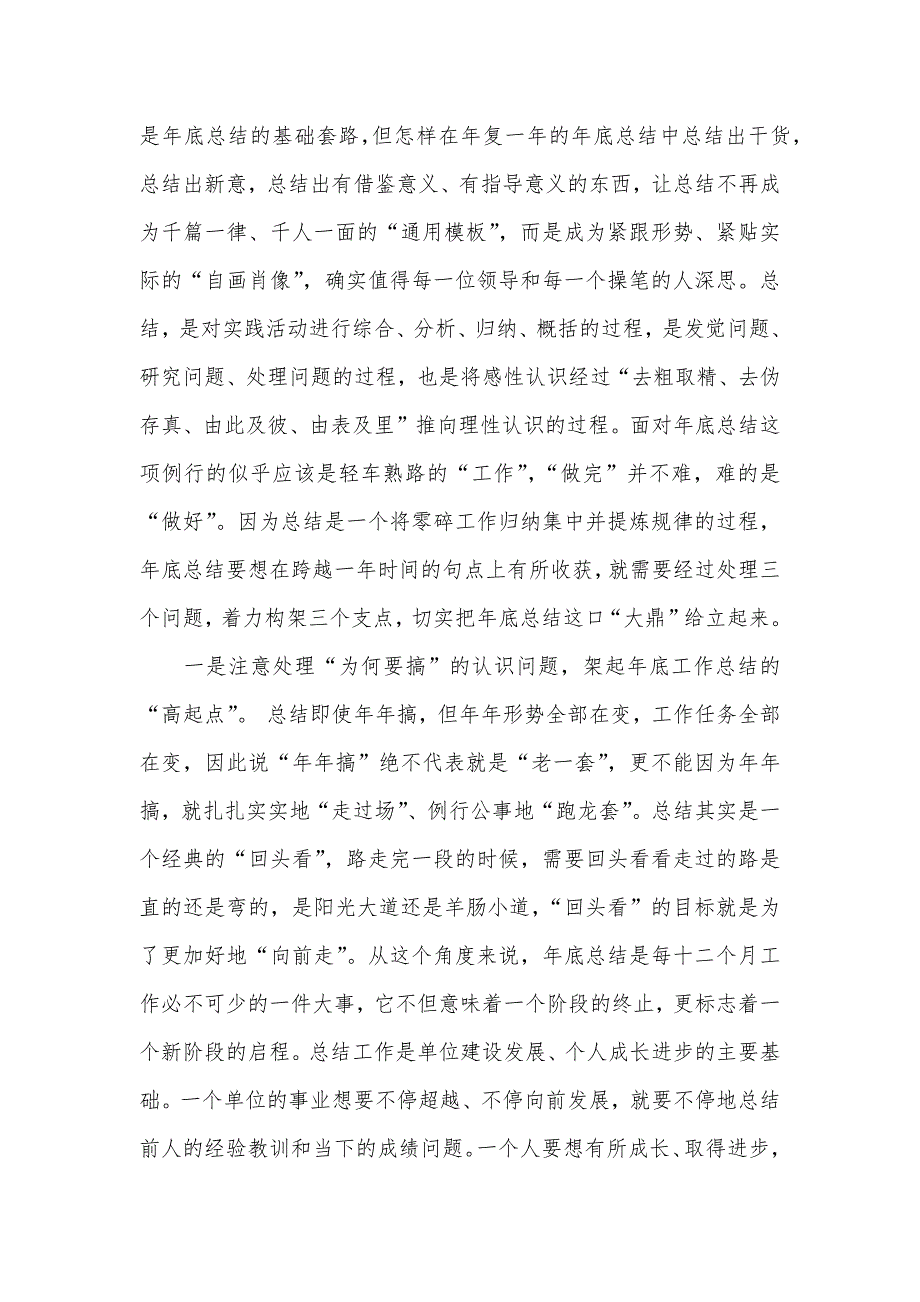 是年底总结的基础套路,但怎样在年复一年的年底总结中总结出干货,
总结出新意，总结出有借鉴意义、有指导意义的东西，让总结不再成
为千篇一律、千人一面的“通用模板”，而是成为紧跟形势、紧贴实
际的“自画肖像”，确实值得每一位领导和每一个操笔的人深思。总
结，是对实践活动进行综合、分析、归纳、概括的过程，是发觉问题、
研究问题、处理问题的过程，也是将感性认识经过“去粗取精、去伪
存真、由此及彼、由表及里”推向理性认识的过程。面对年底总结这
项例行的似乎应该是轻车熟路的“工作”，“做完”并不难，难的是
“做好”。因为总结是一个将零碎工作归纳集中并提炼规律的过程，
年底总结要想在跨越一年时间的句点上有所收获,就需要经过处理三
个问题，着力构架三个支点，切实把年底总结这口“大鼎”给立起来。
一是注意处理“为何要搞”的认识问题，架起年底工作总结的
“高起点”。 总结即使年年搞，但年年形势全部在变，工作任务全部
在变，因此说“年年搞”绝不代表就是“老一套”，更不能因为年年
搞，就扎扎实实地“走过场”、例行公事地“跑龙套”。总结其实是一
个经典的“回头看”，路走完一段的时候，需要回头看看走过的路是
直的还是弯的，是阳光大道还是羊肠小道，“回头看”的目标就是为
了更加好地“向前走”。从这个角度来说，年底总结是每十二个月工
作必不可少的一件大事，它不但意味着一个阶段的终止，更标志着一
个新阶段的启程。总结工作是单位建设发展、个人成长进步的主要基
础。一个单位的事业想要不停超越、不停向前发展，就要不停地总结
前人的经验教训和当下的成绩问题。一个人要想有所成长、取得进步，